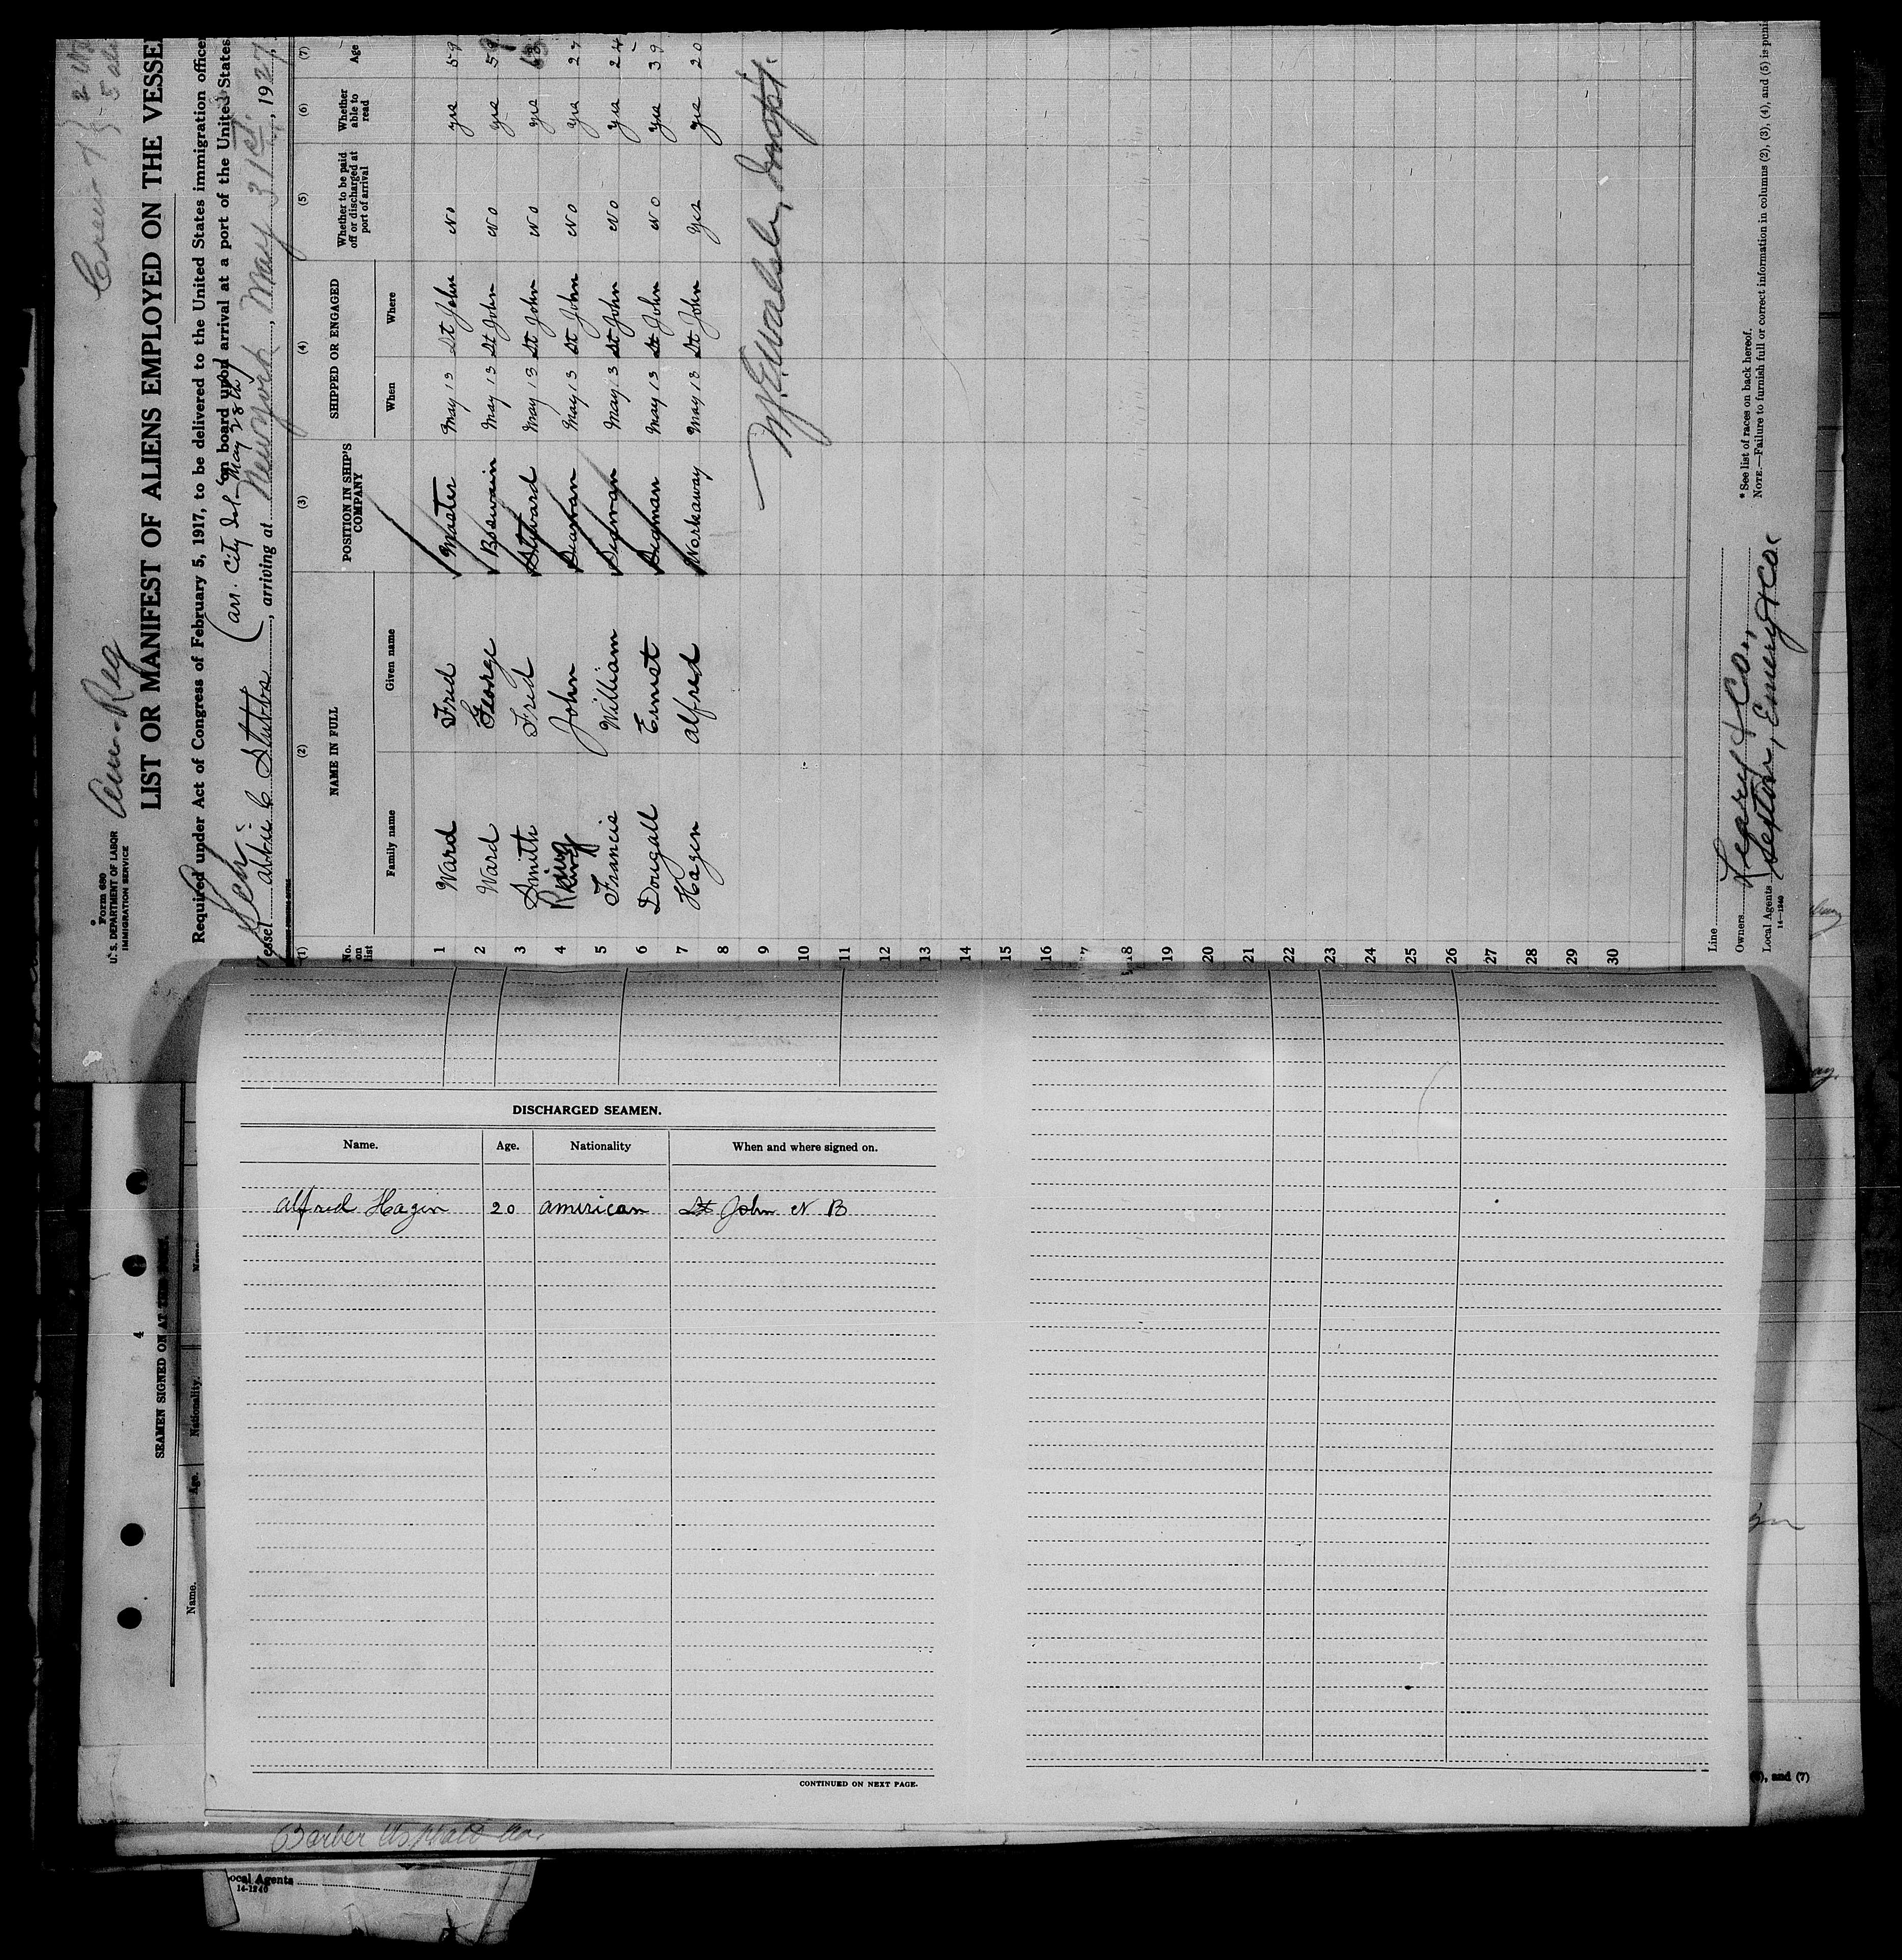 Form 680
U. S. DEPARTMENT OF LABOR
IMMIGRATION SERVICE
Amer Reg
Crew 7
LIST OR MANIFEST OF ALIENS EMPLOYED ON THE VESSE
Required under Act of Congress of February 5, 1917, to be delivered to the United States immigration officer
on board upon arrival at a port of the United States
(arr. City Isl May 28th)
Vessel Abbie C Stubbs, arriving at New York, May 31st, 1927
(1) (2) (3) (4) (5) (6) (7)
No. on list
NAME IN FULL
Family name
Given name
POSITION IN SHIP'S COMPANY
SHIPPED OR ENGAGED
When
Where
Whether to be paid off or discharged at port of arrival
Whether able to read
Age
1 Ward Fred Master May 13 St John No yes 59
2 Ward George Boswain May 13 St John No yes 59
3 Smith Fred Steward May 13 St John No yes 63
4 King John Seaman May 13 St John No yes 27
5 Francis William Seaman May 13 St John No yes 24
6 Dougall Ernest Seaman May 13 St John No yes 39
7 Hagen Alfred Workaway May 13 St John yes yes 20
8
9
10
11
12
13
14
15
16
17
18
19
20
21
22
23
24
25
26
27
28
29
30
Line
Owners
Local Agents
14—1240
* See list of races on back hereof.
NOTE.—Failure to furnish full or correct information in columns (2), (3), (4), and (5) is puni
DISCHARGED SEAMEN.
Name. Age. Nationality When and where signed on.
Alfred Hagin 20 American St John N B
CONTINUED ON NEXT PAGE.
4
SEAMEN SIGNED ON AT
Name. Age. Nationality.
and (7)
Barber Asphalt Co.
ocal Agents
14-1240